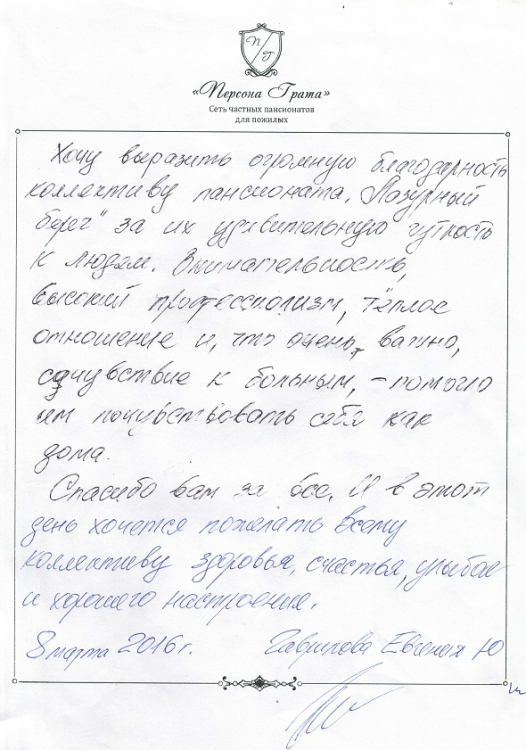 П/Г
«Персона Грата»
Сеть частных пансионатов
для пожилых
Хочу выразить огромную благодарность
коллективу пансионата "Лазурный
берег" за их удивительную чуткость
к людям. Внимательность,
высокий профессионализм, тёплое
отношение и, что очень важно,
сочувствие к больным, – помогло
им почувствовать себя как
дома.
Спасибо вам за все. И в этот
день хочется пожелать всему
коллективу здоровья, счастья, улыбок
и хорошего настроения.
8 марта 2016 г. Гаврилова Евгения Ю